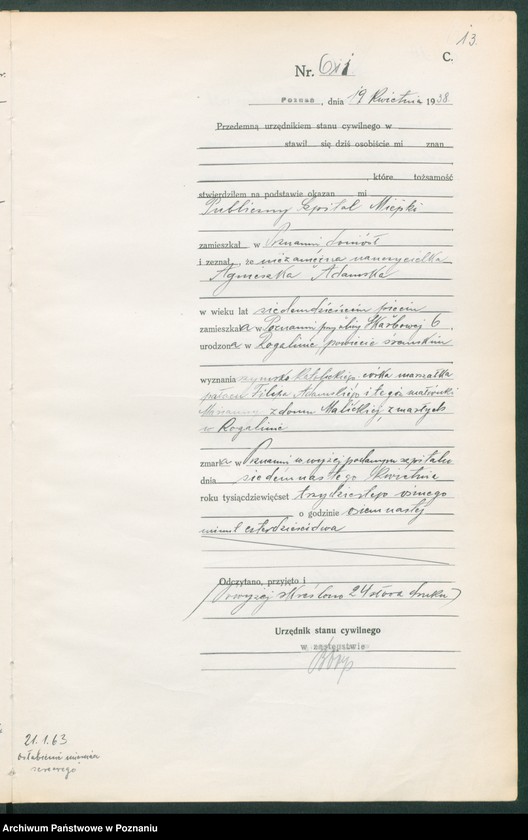 13.
C.
Nr. 611
Poznań, dnia 19 kwietnia 1938.
Przedemną urzędnikiem stanu cywilnego w
stawił się dziś osobiście mi znan
, które tożsamość
stwierdziłem na podstawie okazan mi
Publiczny Szpital Miejski
zamieszkał w Poznaniu doniósł
i zeznał, że niezamężna nauczycielka
Agnieszka Adamska
w wieku lat siedemdziesięciu pięciu
zamieszkała w Poznaniu przy ulicy Skarbowej 6
urodzona w Rogalinie, powiecie śremskim
wyznania rzymsko katolickiego, córka marszałka
pałacu Filipa Adamskiego i tegoż małżonki
Marianny z domu Malickiej, zmarłych
w Rogalinie
zmarła w Poznaniu w wyżej podanym szpitalu
dnia siedemnastego kwietnia
roku tysiącdziewięćset trzydziestego ósmego
o godzinie osiemnastej
minut czterdzieści dwa
Odczytano, przyjęto i
Powyżej skreślono 24 słowa druku
Urzędnik stanu cywilnego
w zastępstwie
21.1.63
osłabienie mięśnia
sercowego
Archiwum Państwowe w Poznaniu